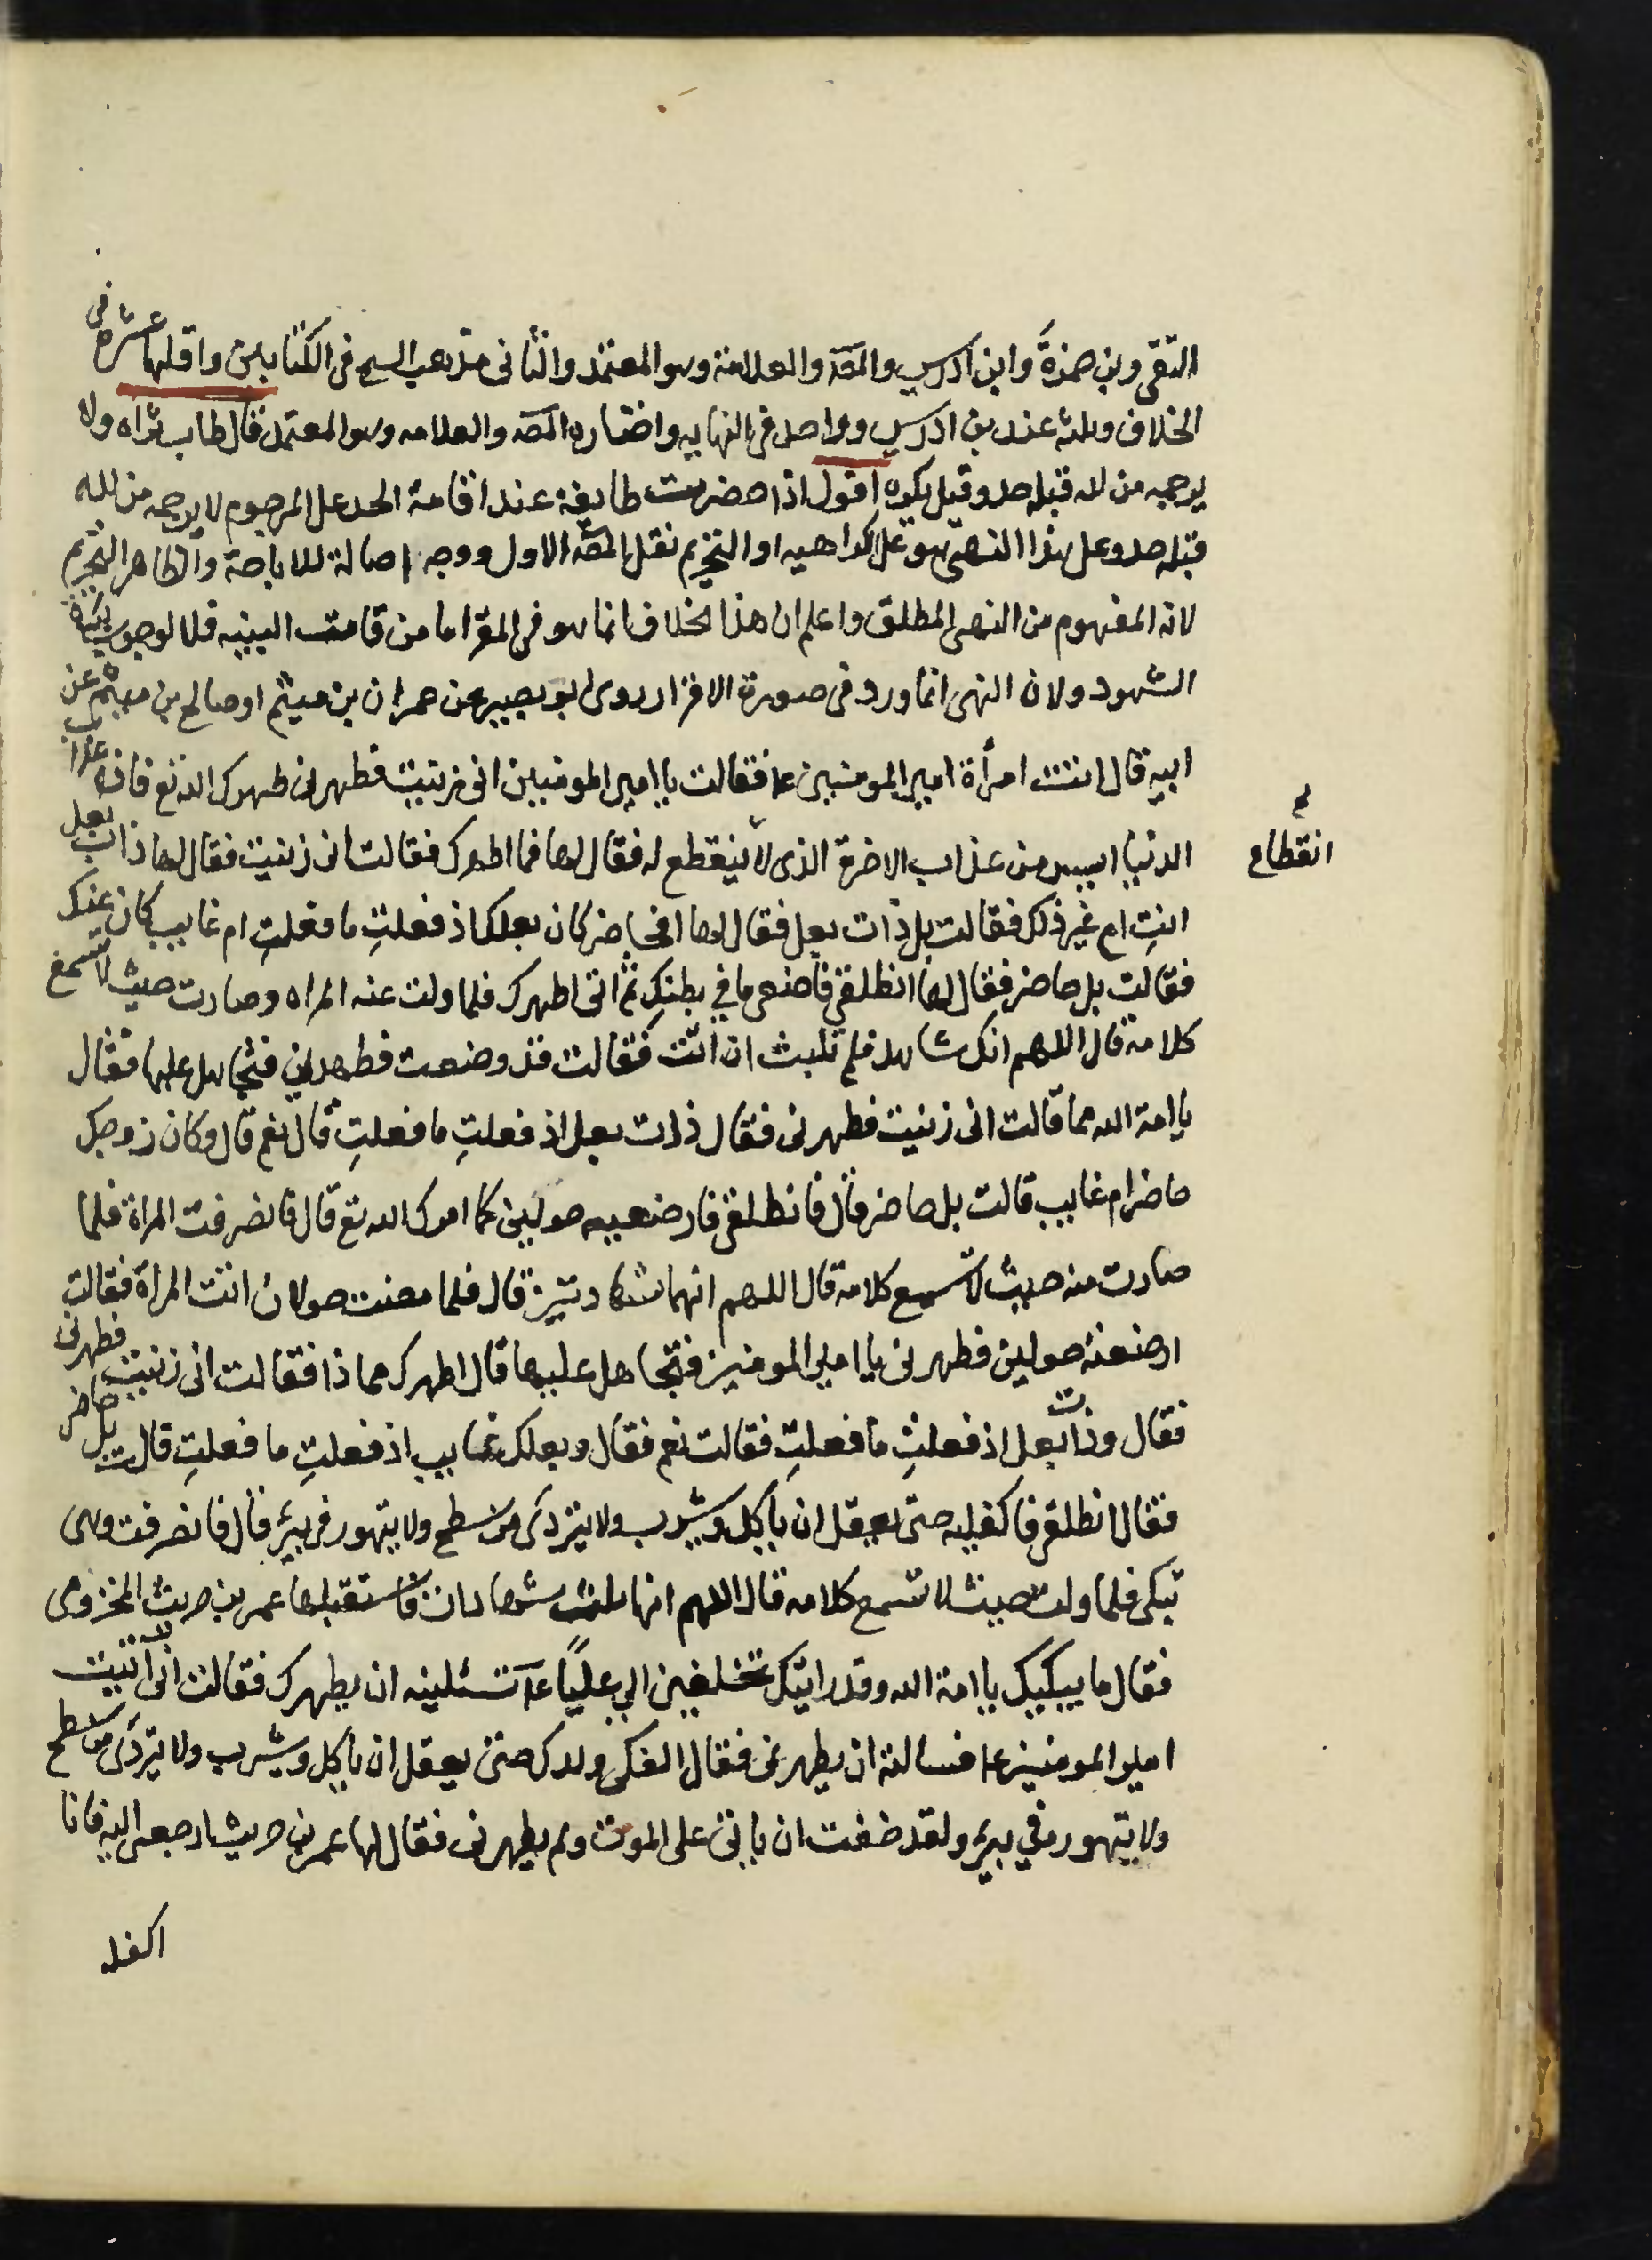 التقى وبن حمزة وابن ادريس والمص والعلامة وهو المعتمد والثانى مذهب الشيخ فى الكتابين واقلها عشرة فى
الخلاف وثلثه عند بن ادريس وواحد فى النهايه واختاره المص والعلامه وهو المعتمد قال طاب ثراه ولا
يرجمه من لله قبله حد وقيل يكره اقول اذا حضرت طايفة عند اقامة الحد على المرجوم لا يرجمه من لله
قبله حد وعلى هذا النهى هو على الكراهيه او التحريم نقل المص الاول ووجه اصالة الاباحة والظاهر التحريم
لانه المفهوم من النهى المطلق واعلم ان هذا الخلاف انما هو فى المقر اما من قامت البينه فلا لوجوب بداة
الشهود ولان النهى انما ورد فى صورة الاقرار روى ابو بصير عن عمران بن ميثم او صالح بن ميثم عن
ابيه قال اتت امرأة امير المومنين ع فقالت يا امير المومنين انى زنيت فطهرنى طهرك الله تع فان عذاب
الدنيا ايسر من عذاب الاخرة الذى لا ينقطع له فقال لها فما اطهرك فقالت انى زنيت فقال لها ذات بعل
انقطاع
انتِ ام غير ذلك فقالت بل ذات بعل فقال لها افحاضر كان بعلك اذ فعلتِ ما فعلتِ ام غايب كان عنك
فقالت بل حاضر فقال لها انطلقى فاضعى ما في بطنكِ ثم اتى اطهرك فلما ولت عنه المراه وصارت حيث لا تسمع
كلامه قال اللهم انك شاهد فلم تلبث ان اتت فقالت قد وضعت فطهرني فتجاهل عليها فقال
يا امة الله مما قالت انى زنيت فطهرنى فقال ذات بعل اذ فعلتِ ما فعلتِ قال نعم قال وكان زوجك
حاضرا م غايب قالت بل حاضر قال فانطلقى فارضعيه حولين كما امرك الله تع قال فانصرفت المراة فلما
صارت منه حيث لا تسمع كلامه قال اللهم انهما شهادتين قال فلما مضت حولان اتت المراة فقالت
ارضعته حولين فطهرنى يا امير المومنين فتجاهل عليها قال اطهرك مما ذا فقالت انى زنيت فطهرنى
فقال وذات بعل اذ فعلتِ ما فعلتِ فقالت نعم فقال وبعلك غايب اذ فعلتِ ما فعلتِ قالت بل حاضر
فقال انطلقى فاكفليه حتى يعقل ان ياكل ويشرب ولا يتردى من سطح ولا يتهور فى بير قال فانصرفت وهى
تبكى فلما ولت حيث لا تسمع كلامه قال اللهم انها ثلث شهادات فاستقبلها عمر بن حريث المخزومى
فقال ما يبكيك يا امة الله وقد رايتك تختلفين الي عليًا ع تسئلينه ان يطهرك فقالت انى اتيت
امير المومنين ع فسالته ان يطهرنى فقال اكفلى ولدك حتى يعقل ان ياكل ويشرب ولا يتردى من سطح
ولا يتهور في بير ولقد خفت ان ياتى على الموت ولم يطهرنى فقال لها عمر بن حريث ارجعى اليه فانا
اكفله